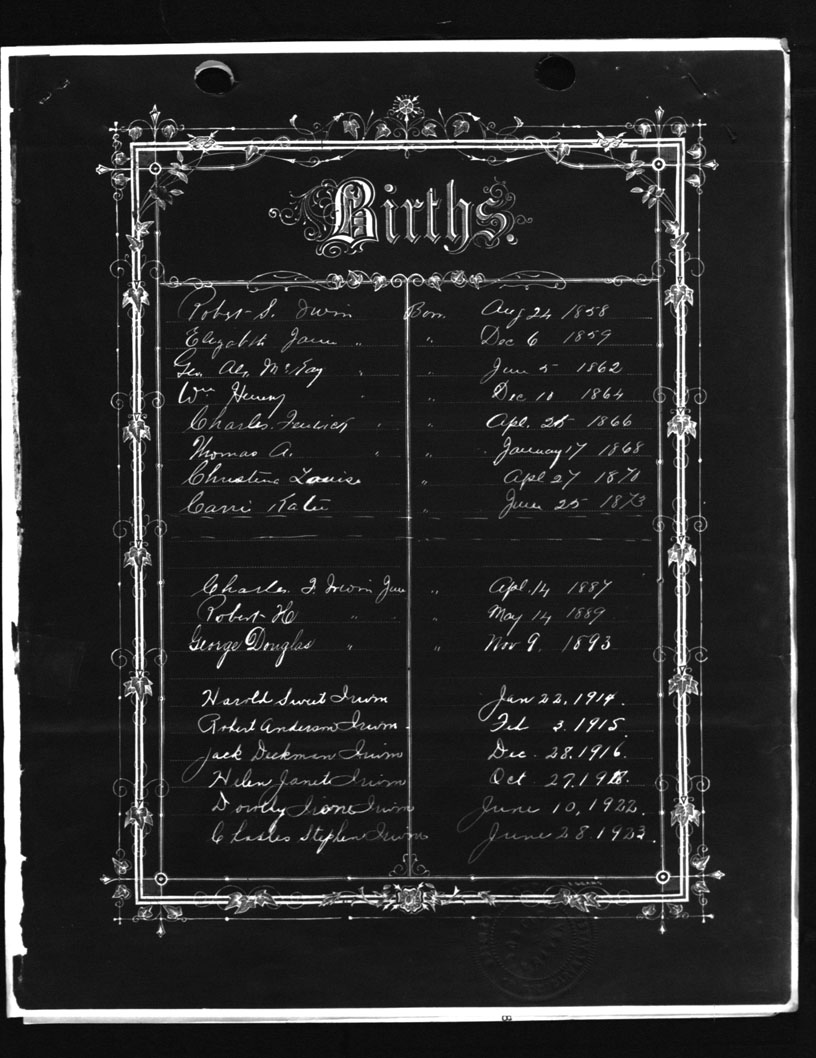 Births.
Robert S. Irwin Born Aug 24 1858
Elizabeth Jane " " Dec 6 1859
Geo. Alx McKay " " June 5 1862
Wm Henry " " Dec 10 1864
Charles Fredrick " " Apl. 25 1866
Thomas A. " " January 17 1868
Christina Louise " Apl 27 1870
Carri Katie " June 25 1873
Charles F. Irwin Jun " Apl. 14 1887
Robert H " " May 14 1889
George Douglas " " Nov 9. 1893
Harold Sweet Irwin Jan 22, 1914.
Robert Anderson Irwin Feb 3. 1915
Jack Deckman Irwin Dec. 28. 1916.
Helen Janet Irwin Oct 27. 1918.
Irene Irwin June 10, 1922.
Charles Stephen Irwin June 28. 1923.